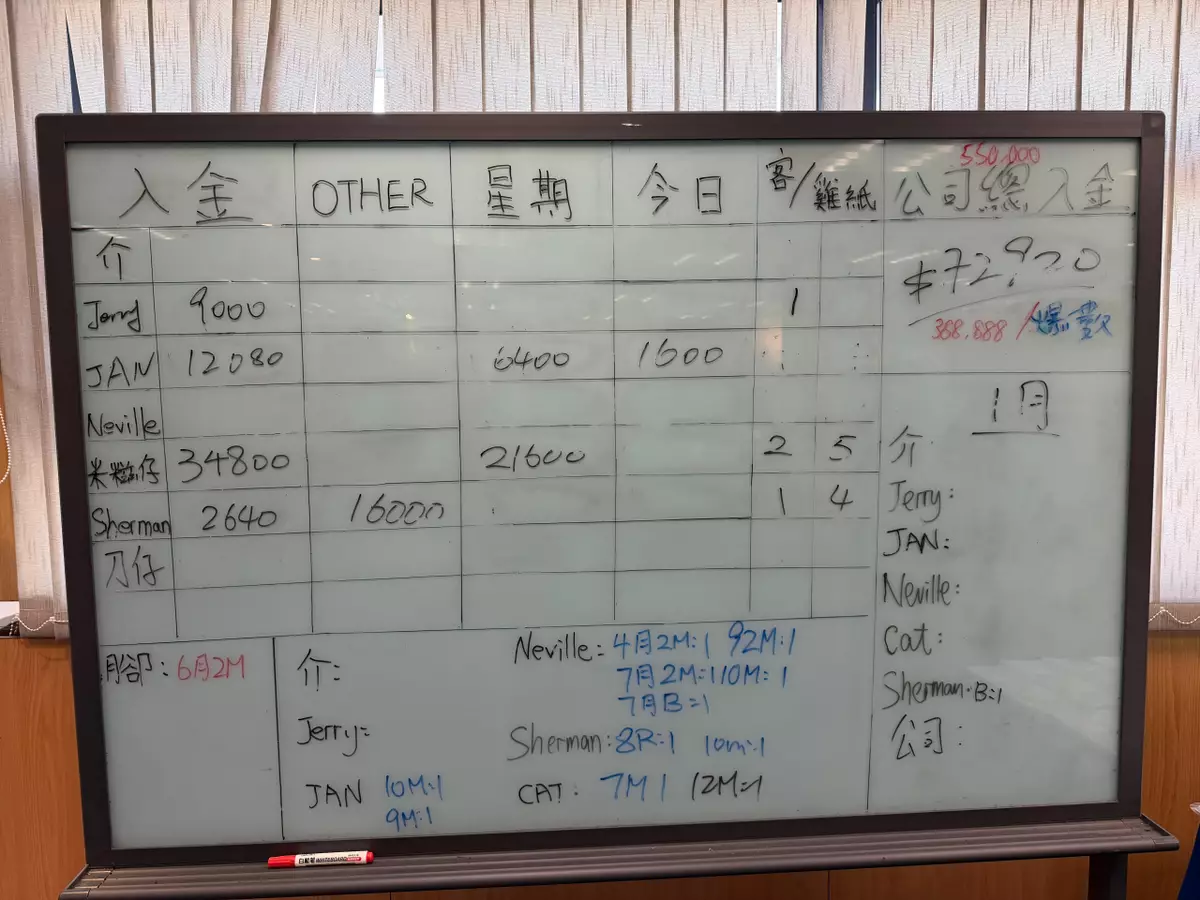 入金 OTHER 星期 今日 客/雞紙
介
Jerry 9000 1
JAN 12080 6400 1600
Neville
米粒仔 34800 21600 2 5
Sherman 2640 16000 1 4
刀仔
550,000
公司總入金
$72,920
388.888/爆數
1月
介
Jerry:
JAN:
Neville:
Cat:
Sherman. B=1
公司:
6月2M
介:
Jerry:
JAN 10M:1
9M:1
Neville: 4月2M:1 92M:1
7月2M=1 10M:1
7月B=1
Sherman: 8R:1 10m:1
CAT: 7M1 12M=1